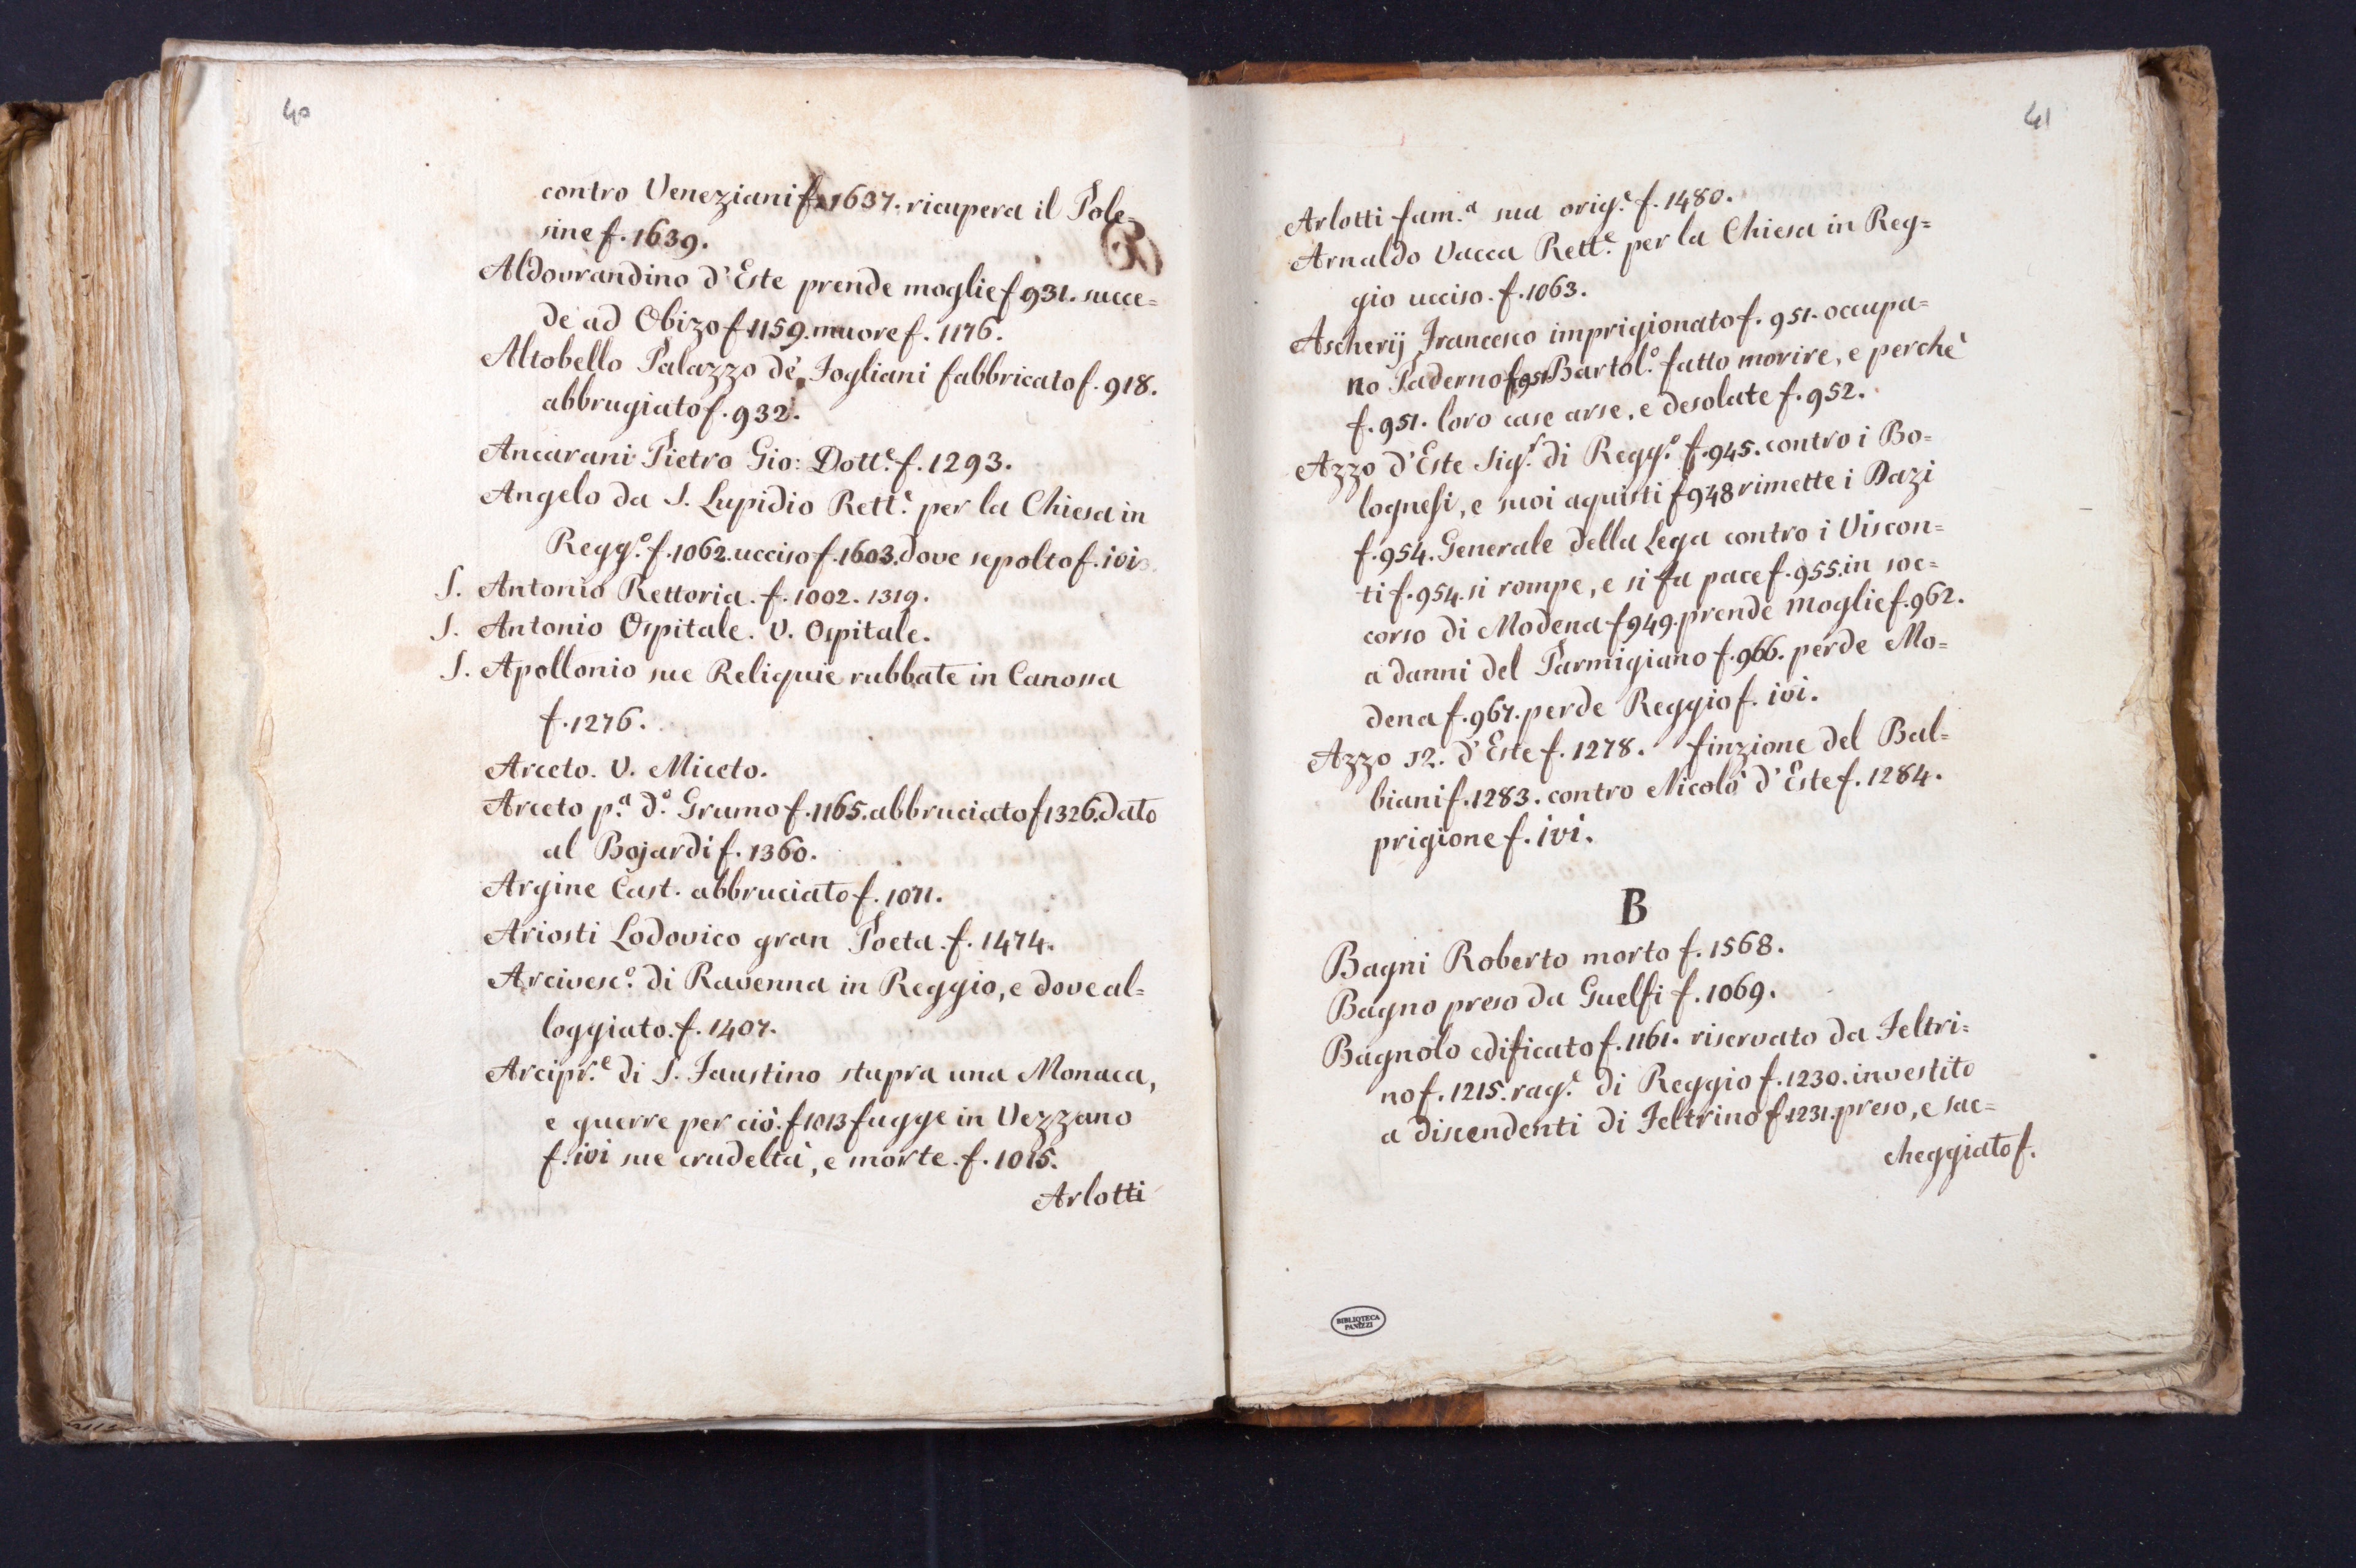 40
contro Veneziani f. 1637. ricupera il Pole=
sine f. 1639.
Aldovrandino d'Este prende moglie f 931. succe=
de ad Obizo f 1159. muore f. 1176.
Altobello Palazzo de' Fogliani fabbricato f. 918.
abbrugiato f. 932.
Ancarani Pietro Gio: Dott.e f. 1293.
Angelo da S. Lupidio Rett.e per la Chiesa in
Regg.o f. 1062. ucciso f. 1603. dove sepolto f. ivi
S. Antonio Rettoria. f. 1002. 1319.
S. Antonio Ospitale. V. Ospitale.
S. Apollonio sue Reliquie rubbate in Canossa
f. 1276.
Arceto. V. Miceto.
Arceto p.a d.o Grumo f. 1165. abbruciato f 1326. dato
al Bojardi f. 1360.
Argine Cast. abbruciato f. 1071.
Ariosti Lodovico gran Poeta. f. 1474.
Arcivesc.o di Ravenna in Reggio, e dove al=
loggiato. f. 1407.
Arcipr.e di S. Faustino stupra una Monaca,
e guerre per ciò. f 1013 fugge in Vezzano
f. ivi sue crudeltà, e morte. f. 1015.
Arlotti
41
Arlotti fam.a sua orig.e f. 1480.
Arnaldo Vacca Rett.e per la Chiesa in Reg=
gio ucciso. f. 1063.
Ascherij Francesco imprigionato f. 951. occupa=
no Paderno f 951. Bartol.o fatto morire, e perchè
f. 951. loro case arse, e desolate f. 952.
Azzo d'Este Sig.r di Regg.o f. 945. contro i Bo=
lognesi, e suoi aquisti f 948 rimette i Dazi
f. 954. Generale della Lega contro i Viscon=
ti f. 954. si rompe, e si fa pace f. 955. in soc=
corso di Modena f 949. prende moglie f. 962.
a danni del Parmigiano f. 966. perde Mo=
dena f. 967. perde Reggio f. ivi.
Azzo 12. d'Este f. 1278. finzione del Bal=
biani f. 1283. contro Nicolò d'Este f. 1284.
prigione f. ivi.
B
Bagni Roberto morto f. 1568.
Bagno preso da Guelfi f. 1069.
Bagnolo edificato f. 1161. riservato da Feltri=
no f. 1215. rag.e di Reggio f. 1230. investito
a discendenti di Feltrino f 1231. preso, e sac=
cheggiato f.
BIBLIOTECA
PANIZZI